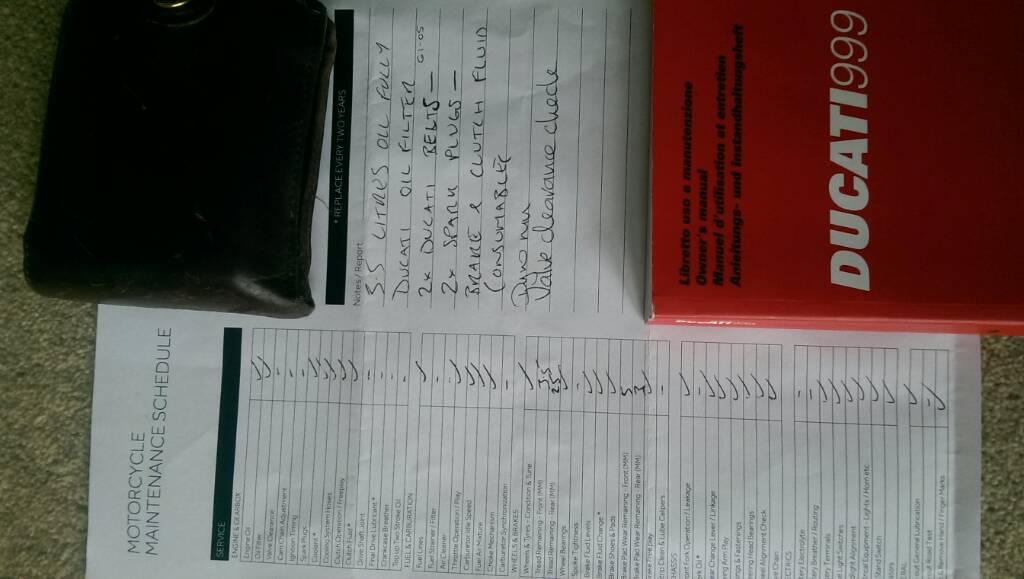 MOTORCYCLE
MAINTENANCE SCHEDULE
SERVICE
ENGINE & GEARBOX
Engine Oil
Oil Filter
Valve Clearance
Cam Chain Adjustment
Ignition Timing
Spark Plugs
Coolant *
Cooling System Hoses
Clutch Operation / Freeplay
Clutch Fluid *
Drive Shaft Joint
Final Drive Lubricant *
Crankcase Breather
Top Up Two Stroke Oil
FUEL & CARBURATION
Fuel Lines
Fuel Strainer / Filter
Air Cleaner
Throttle Operation / Play
Carburettor Idle Speed
Fuel Air Mixture
Choke Mechanism
Carburettor Synchronisation
WHEELS & BRAKES
Wheels & Tyres - Condition & Type
Tread Remaining - Front (MM) 3.5
Tread Remaining - Rear (MM) 2.5
Wheel Bearings
Spoke Tightness
Brake Fluid Levels
Brake Fluid Change *
Brake Shoes & Pads
Brake Pad Wear Remaining - Front (MM) 5
Brake Pad Wear Remaining - Rear (MM) 3
Free play
Strip Clean & Lube Calipers
Operation / Leakage
Oil *
Gear Change Lever / Linkage
Arm Play
& Fastenings
Head Bearings
Alignment Check
Chain
Electrolyte
Breather / Routing
Light Switches
Alignment
Equipment - Lights / Horn etc
Stand Switch
Lubrication
Road Test
& Remove Hand / Finger Marks
* REPLACE EVERY TWO YEARS
Notes / Report
3.5 LITRES OIL FULLY
DUCATI OIL FILTER
2x DUCATI BELTS —
2x SPARK PLUGS —
BRAKE & CLUTCH FLUID
CONSUMABLES
Dyno run
Valve clearance check
Libretto uso e manutenzione
Owner's manual
Manuel d'utilisation et entretien
Anleitungs- und Instandhaltungsheft
DUCATI999
DUCATI